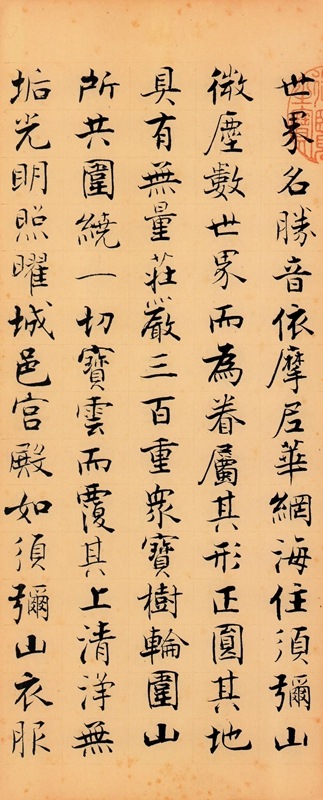 世界名勝音依摩尼華網海住須彌山
微塵數世界而為眷屬其形正圓其地
具有無量莊嚴三百重眾寶樹輪圍山
所共圍繞一切寶雲而覆其上清淨無
垢光明照曜城邑宮殿如須彌山衣服